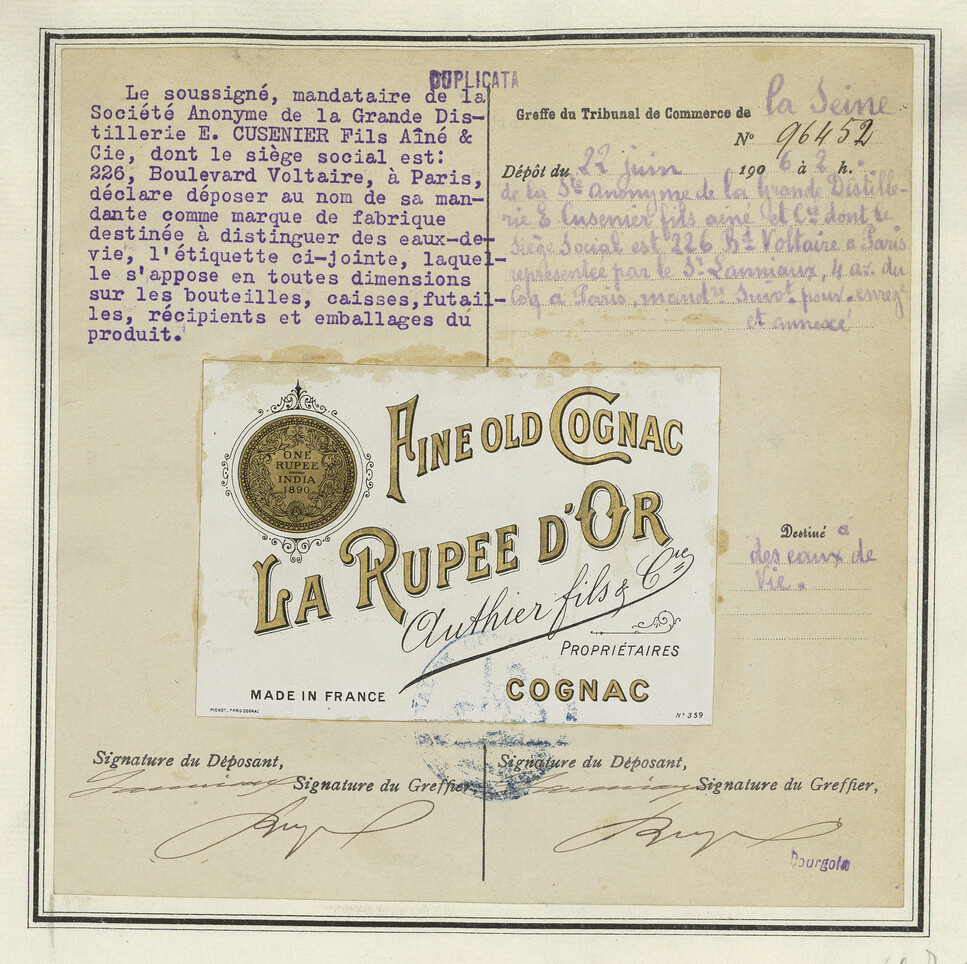 DUPLICATA
Le soussigné, mandataire de la
Société Anonyme de la Grande Dis-
tillerie E. CUSENIER Fils Aîné &
Cie, dont le siège social est:
226, Boulevard Voltaire, à Paris,
déclare déposer au nom de sa man-
dante comme marque de fabrique
destinée à distinguer des eaux-de-
vie, l'étiquette ci-jointe, laquel-
le s'appose en toutes dimensions
sur les bouteilles, caisses,futail-
les, récipients et emballages du
produit.
Greffe du Tribunal de Commerce de la Seine
N° 96452
Dépôt du 22 juin 190 6 à 2 h. :
de la Sté Anonyme de la Grande Distille-
rie E. Cusenier fils aîné et Cie dont le
siège Social est 226 Bd Voltaire a Paris
représentée par le Sr Lanniaux, 4 av. du
Coq à Paris, mandre suivt pouv. enregt
et annexé
ONE
RUPEE
INDIA
1890
FINE OLD COGNAC
LA RUPEE D'OR
Authier fils & Cie
PROPRIÉTAIRES
MADE IN FRANCE
COGNAC
PICHOT, PARIS COGNAC
N° 359
Destiné à
des eaux de
Vie.
Signature du Déposant,
Signature du Greffier,
Signature du Déposant,
Signature du Greffier,
Bourgoin